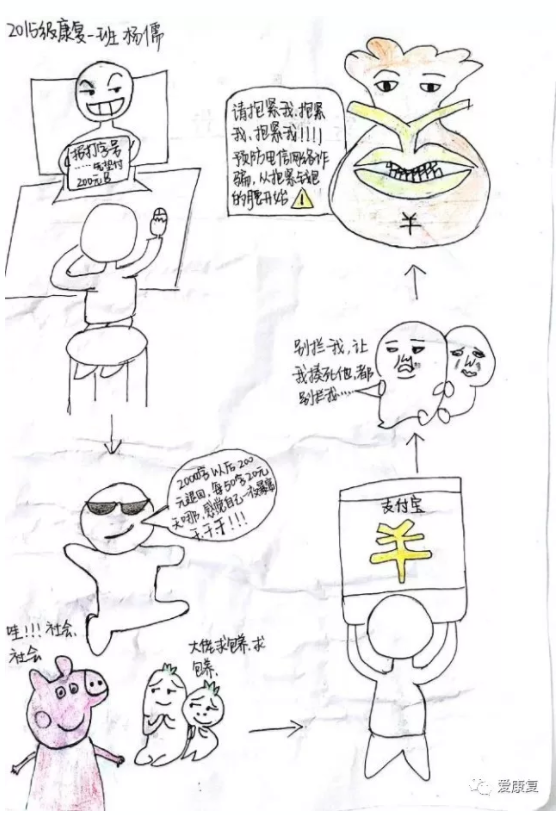 2015级康复一班 杨儒
招打字员
……先垫付
200元B
2000字以后200
元退回，每50字20元
天哪，感觉自己一夜暴富
哇！！！社会、
社会
大佬求包养、求
包养、
支付宝
羊
别拦我，让
我揍死他，都
别拦我……
请抱紧我、抱紧
我，抱紧我！！！！
预防电信网络诈
骗，从抱紧与
的腿开始
羊
爱康复